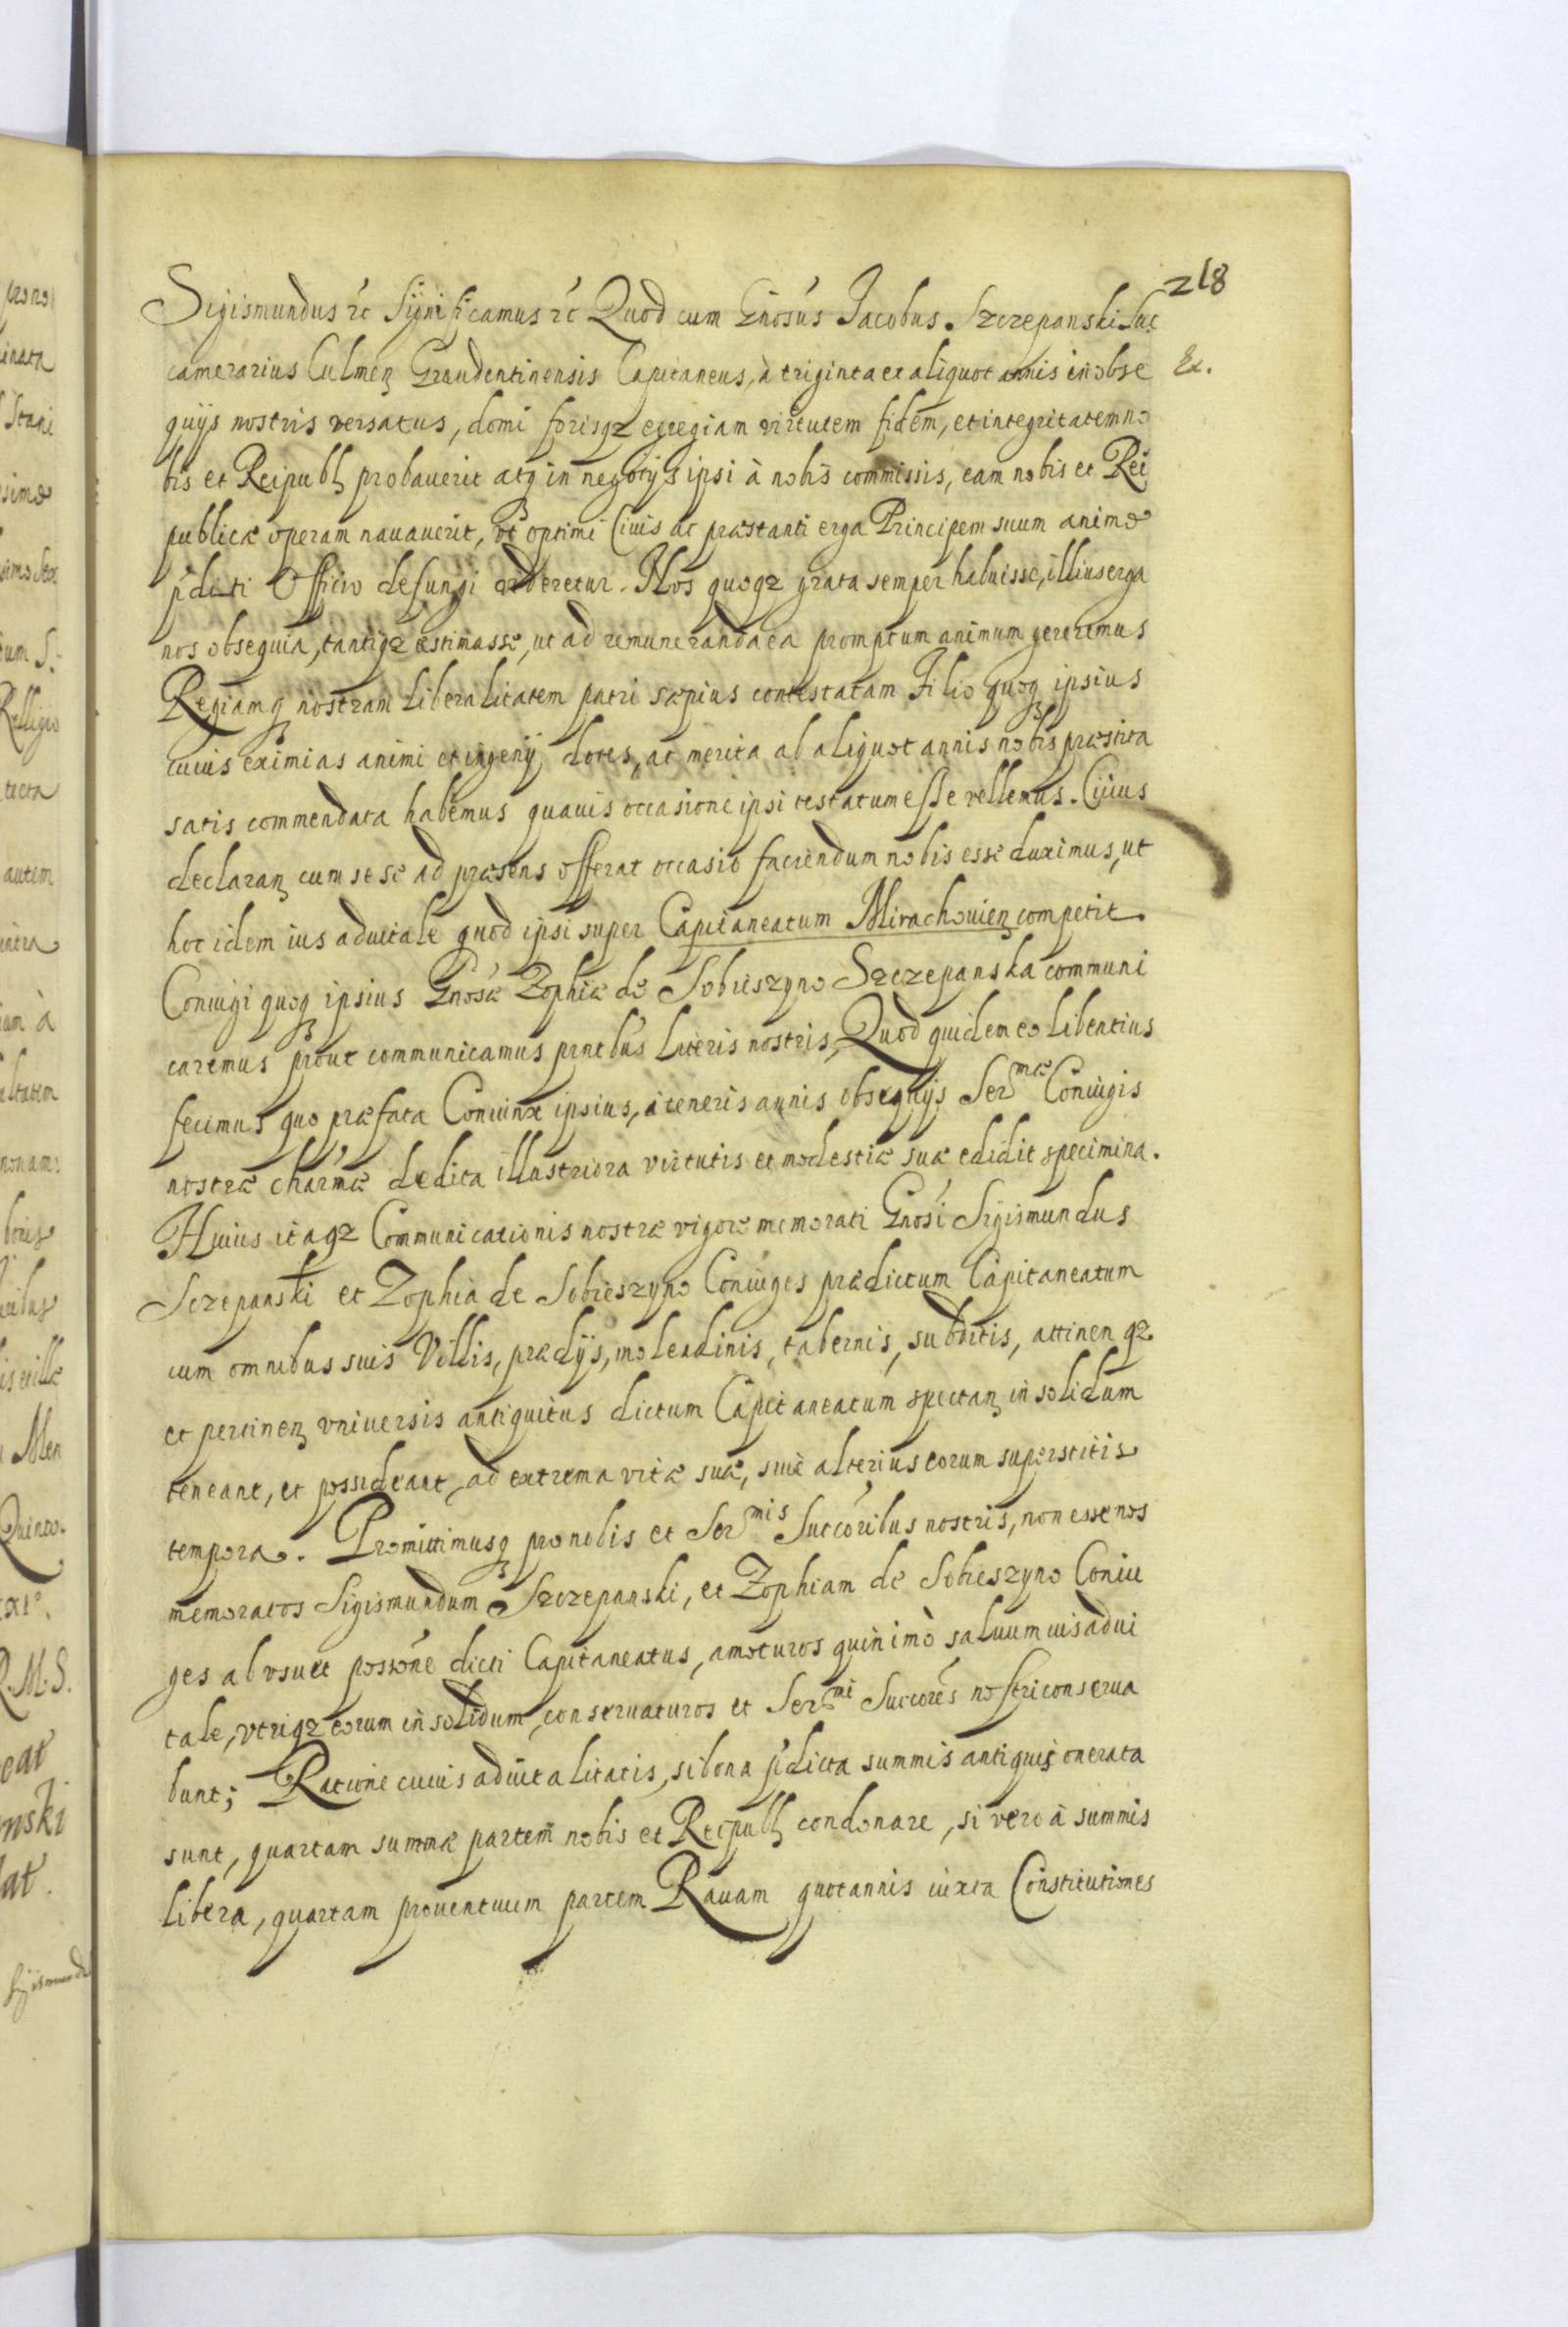 218
Sigismundus etc Significamus etc Quod cum Gnosus Jacobus Szczepanski Suc
camerarius Culmen Graudentinensis Capitaneus, à triginta et aliquot annis in obse
Ex.
quijs nostris versatus, domi forisqz egregiam virtutem fidem, et integritatem no
bis et Reipubl probauerit atqz in negotijs ipsi à nobis commissis, eam nobis et Rei
publicæ operam nauauerit, vt optimi Ciuis ac præstanti erga Principem suum animo
pditi Officio defungi videretur. Nos quoqz grata semper habuisse, illius erga
nos obsequia, tantiqz æstimasse, ut ad remuneranda ea promptum animum gereremus
Regiamqz nostram liberalitatem patri sæpius contestatam Filio quoqz ipsius
cuius eximias animi et ingenij dotes, ac merita ab aliquot annis nobis præstita
satis commendata habemus quauis occasione ipsi testatum esse vellemus. Cuius
declaran cum sese ad præsens offerat occasio faciendum nobis esse duximus, ut
hoc idem ius aduitale quod ipsi super Capitaneatum Mirachouien competit
Coniugi quoqz ipsius Gnosæ Zophiæ de Sobieszyno Szczepanska communi
caremus prout communicamus pntibus literis nostris, Quod quidem eo libentius
fecimus quo præfata Coniunx ipsius, à teneris annis obsequijs Sermæ Coniugis
nostræ charmæ dedita illustriora virtutis et modestiæ suæ edidit specimina.
Huius itaqz Communicationis nostræ vigore memorati Gnosi Sigismundus
Sczepanski et Zophia de Sobieszyno Coniuges prædictum Capitaneatum
cum omnibus suis Villis, prædijs, molendinis, tabernis, subditis, attinen qz
et pertinen vniuersis antiquitus dictum Capitaneatum spectan in solidum
teneant, et possideant, ad extrema vitæ suæ, siue alterius eorum superstitis
tempora. Promittimusqz pro nobis et Sermis Succoribus nostris, non esse nos
memoratos Sigismundum Szczepanski, et Zophiam de Sobieszyno Coniu
ges ab vsu et possone dicti Capitaneatus, amoturos quinimò saluum ius adui
tale, vtriqz eorum in solidum, conseruaturos et Sermi Succores nostri conserua
bunt; Ratione cuius aduitalitatis, si bona pdicta summis antiquis onerata
sunt, quartam summæ partem nobis et Reipubl condonare, si vero à summis
libera, quartam prouentuum partem Rauam quotannis iuxta Constitutiones